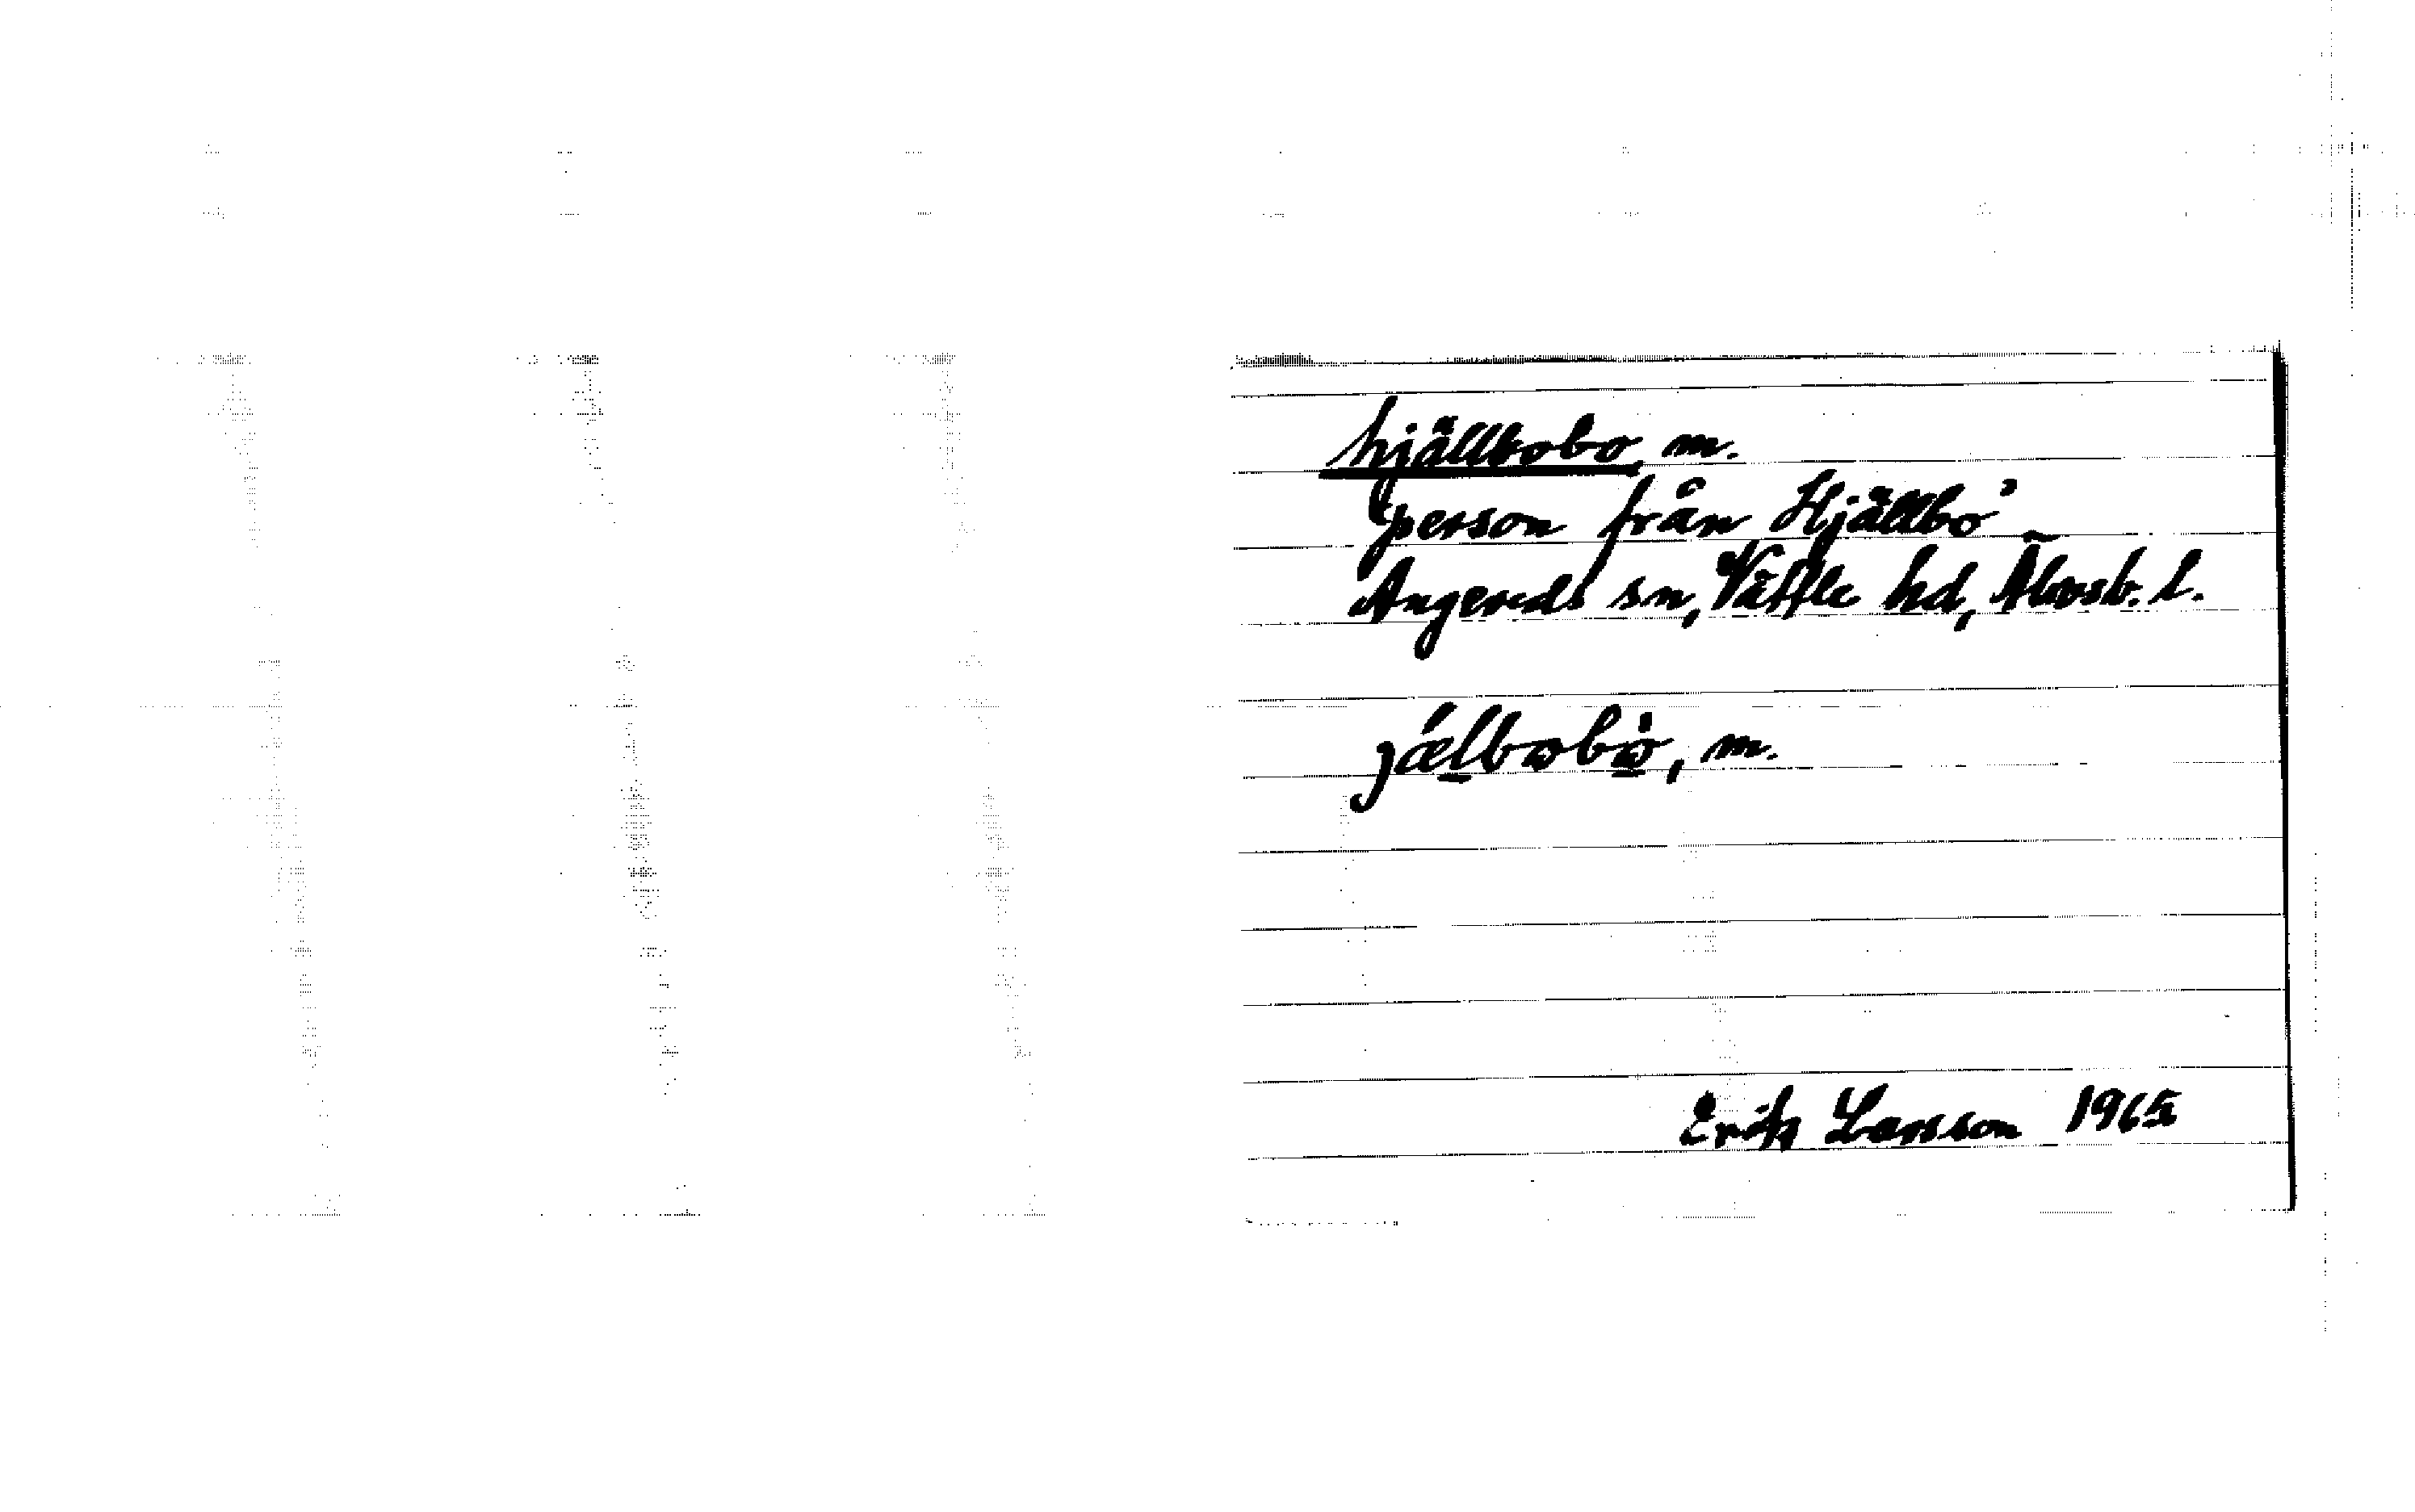 hjällbobo, m.
'person från Hjällbo'
Angereds sn, Vättle hd, Älvsb. l.
jǽlbωbὼ, m.
Erik Larsson 1965